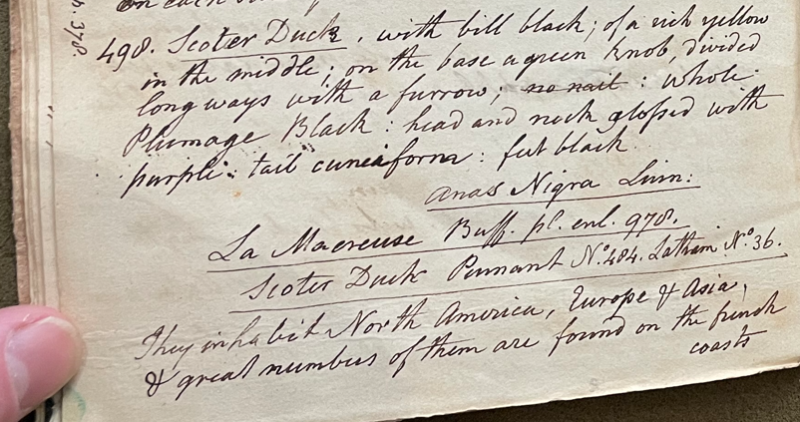 on each
p. 378.
498. Scoter Duck, with bill black; of a rich yellow
in the middle; on the base a green knob, divided
longways with a furrow; no nail: whole
Plumage Black: head and neck glossed with
purple: tail cuneiform: feet black
Anas Nigra Linn:
La Macreuse Buff. pl. enl. 978.
Scoter Duck Pennant No. 484. Latham No. 36.
They inhabit North America, Europe & Asia,
& great numbers of them are found on the french
coasts